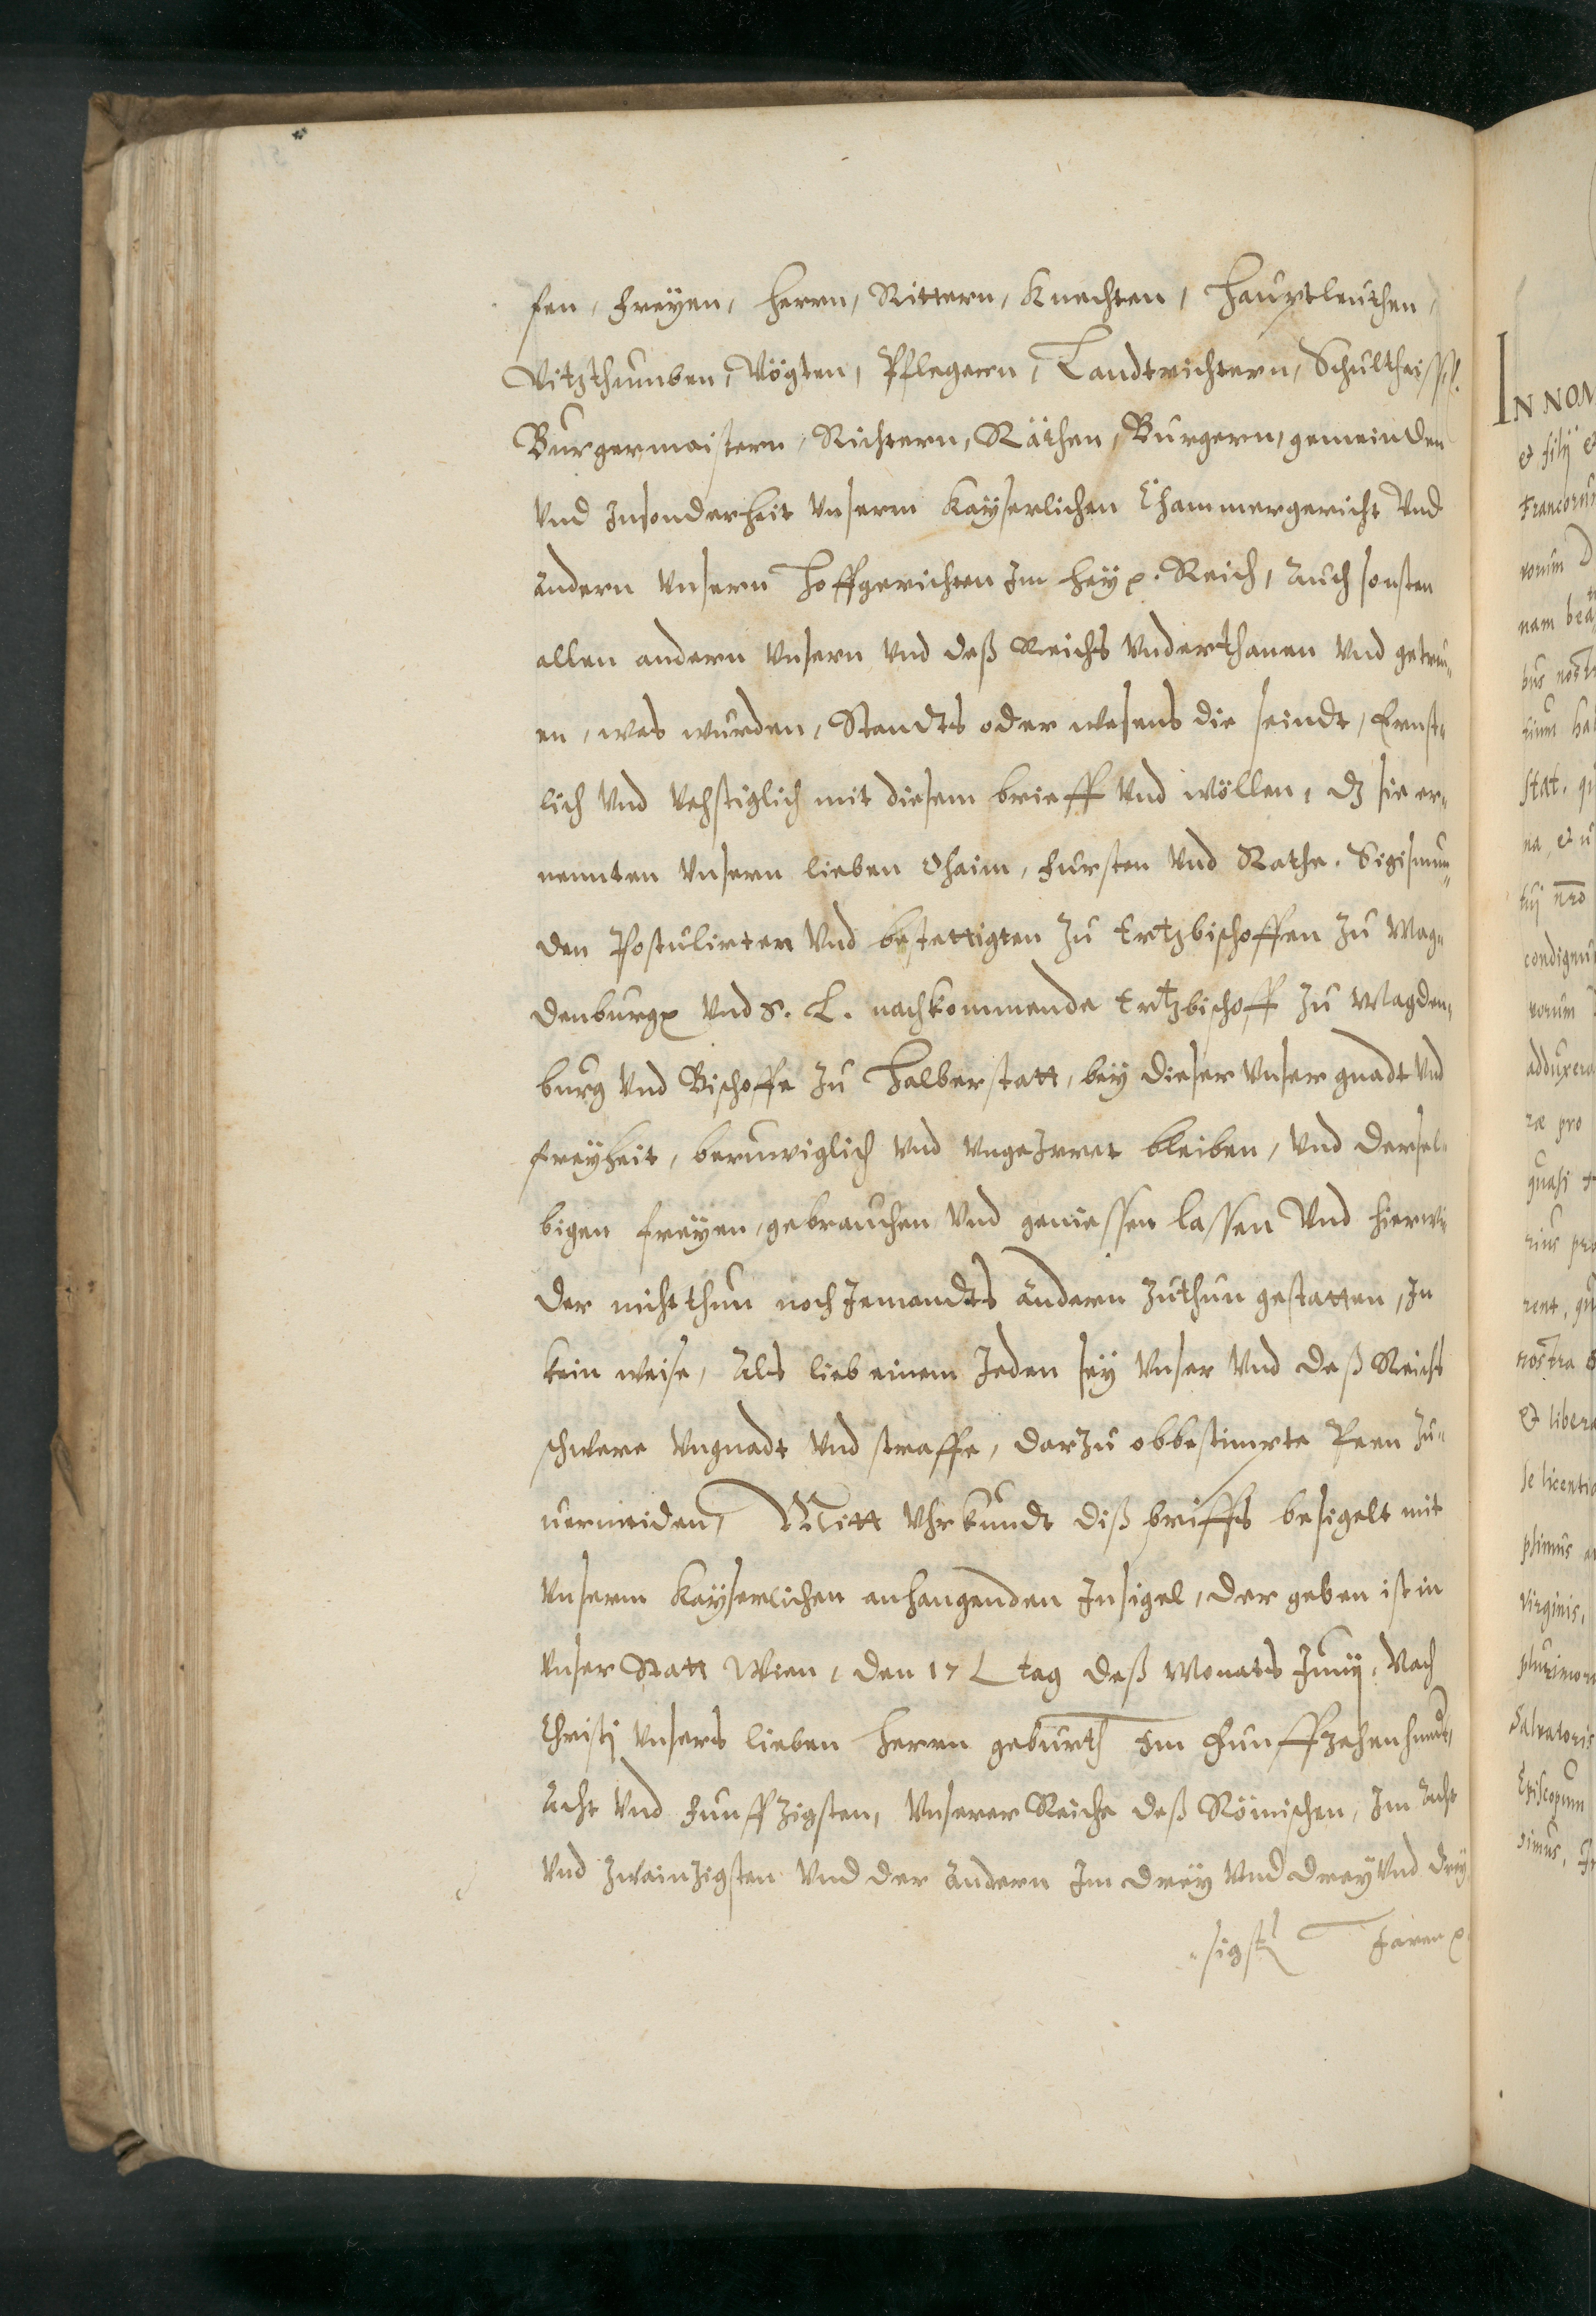 fen, Freyen, Herrn, Rittern, Knechten, Hauptleuthen,
Vitzthumben, Vögten, Pflegern, Landtrichtern, Schultheiss.
Burgermaistern, Richtern, Räthen, Burgern, gemeinden
Vnd Insonderheit Vnserm Kayserlichen Chammergericht Vnd
andern Vnsern Hoffgerichten Im Heyl. Reich, Auch sonsten
allen andern Vnsern Vnd deß Reichs Vnderthanen Vnd getreu„
en, was wurden, Standts oder wesens die seindt, Ernst„
lich Vnd Vehstiglich mit diesem brieff Vnd wöllen, dz sie er„
nennten Vnsern lieben Ohaim, Fursten Vnd Rathe. Sigismun„
den Postulirten Vnd bestettigten Zu Ertzbischoffen Zu Mag„
denburg Vnd S. L. nachkommende Ertzbischoff Zu Magden„
burg Vnd Bischoffe Zu Halberstatt, bey dieser Vnser gnadt Vnd
freyheit, beruwiglich Vnd VngeIrret bleiben, Vnd dersel„
bigen freyen, gebrauchen Vnd geniessen lassen Vnd hierwi„
der nicht thun noch Jemandts andern Zuthun gestatten, In
kein weise, Als lieb einem Jeden sey Vnser Vnd deß Reichs
schwere Vngnadt Vnd straffe, darzu obbestimpte Peen Zu„
uermeiden, Mitt Vhrkundt diß briffs besigelt mit
Vnserm Kayserlichen anhangenden Insigel, der geben ist in
Vnser Statt Wien, den 17 tag deß Monats Junij, Nach
Christi Vnsers lieben Herrn geburth Im Funffzehenhundt,
Acht Vnd Funffzigsten, Vnserer Reiche deß Römischen, Im Acht
Vnd Zwainzigsten Vnd der Andern Im drey Vnd drey Vnd drey
sigst Jaren
IN NOM
et filij e
Francorum
vorum D
nam bea
bus nost
stat. qu
tuj nro
condignu
vorum
adduxera
ræ pro
quasi
rius pro
rent, qu
nostra
et libera
se licentia
plimus a
Virginis,
plurimor
Salvatoris
Episcopum
simus,